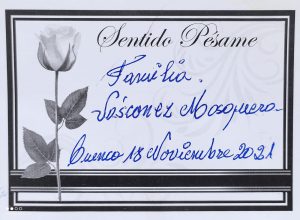 Sentido Pésame
Familia.
Vásconez Mosquera
Cuenca 18 Noviembre 2021